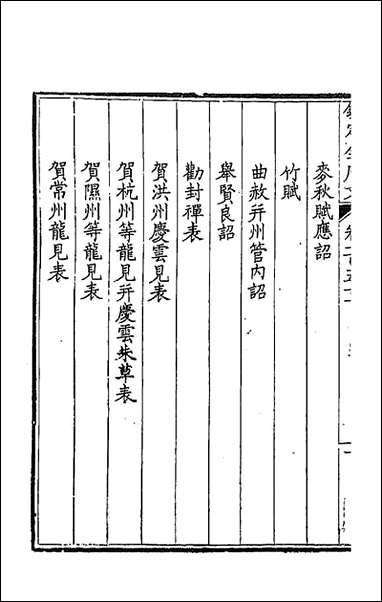 麥秋賦應詔
竹賦
曲赦并州管内詔
舉賢良詔
勸封禪表
賀洪州慶雲見表
賀杭州等龍見并慶雲朱草表
賀隰州等龍見表
賀常州龍見表